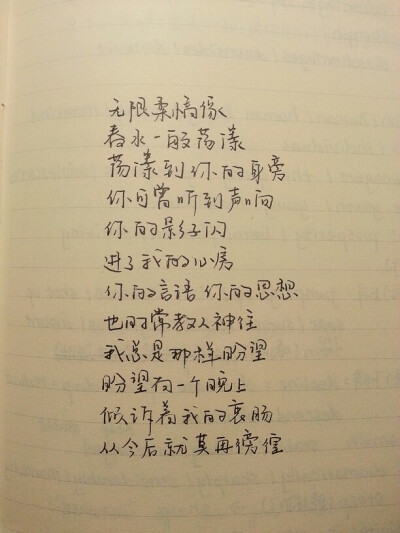 无限柔情像
春水一般荡漾
荡漾到你的身旁
你可曾听到声响
你的影子闪
进了我的心房
你的言语你的思想
也时常教人神往
我总是那样盼望
盼望有一个晚上
倾诉着我的衷肠
从今后就莫再傍徨